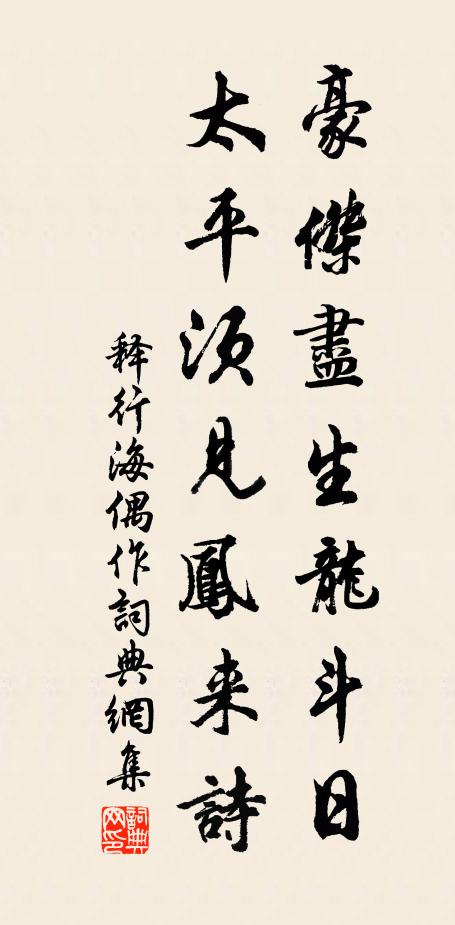 豪傑盡生龍斗日
太平須見鳳来詩
释行海偶作詞典網集
詞典网印